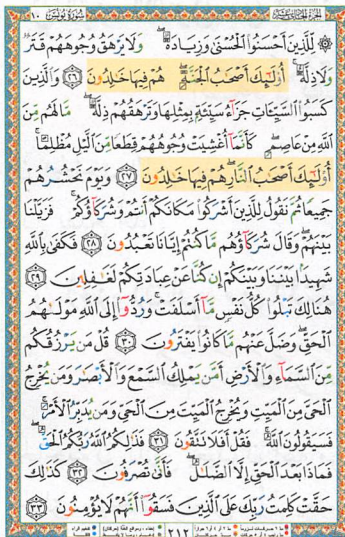 الجزء الحادي عشر سورة يونس ١٠
۞ لِّلَّذِينَ أَحْسَنُوا۟ ٱلْحُسْنَىٰ وَزِيَادَةٌ ۖ وَلَا يَرْهَقُ وُجُوهَهُمْ قَتَرٌ
وَلَا ذِلَّةٌ ۚ أُو۟لَـٰٓئِكَ أَصْحَـٰبُ ٱلْجَنَّةِ ۖ هُمْ فِيهَا خَـٰلِدُونَ ٢٦ وَٱلَّذِينَ
كَسَبُوا۟ ٱلسَّيِّـَٔاتِ جَزَآءُ سَيِّئَةٍۭ بِمِثْلِهَا وَتَرْهَقُهُمْ ذِلَّةٌ ۖ مَّا لَهُم مِّنَ
ٱللَّهِ مِنْ عَاصِمٍ ۖ كَأَنَّمَآ أُغْشِيَتْ وُجُوهُهُمْ قِطَعًا مِّنَ ٱلَّيْلِ مُظْلِمًا ۚ
أُو۟لَـٰٓئِكَ أَصْحَـٰبُ ٱلنَّارِ ۖ هُمْ فِيهَا خَـٰلِدُونَ ٢٧ وَيَوْمَ نَحْشُرُهُمْ
جَمِيعًا ثُمَّ نَقُولُ لِلَّذِينَ أَشْرَكُوا۟ مَكَانَكُمْ أَنتُمْ وَشُرَكَآؤُكُمْ ۚ فَزَيَّلْنَا
بَيْنَهُمْ ۖ وَقَالَ شُرَكَآؤُهُم مَّا كُنتُمْ إِيَّانَا تَعْبُدُونَ ٢٨ فَكَفَىٰ بِٱللَّهِ
شَهِيدًۢا بَيْنَنَا وَبَيْنَكُمْ إِن كُنَّا عَنْ عِبَادَتِكُمْ لَغَـٰفِلِينَ ٢٩
هُنَالِكَ تَبْلُوا۟ كُلُّ نَفْسٍ مَّآ أَسْلَفَتْ ۚ وَرُدُّوٓا۟ إِلَى ٱللَّهِ مَوْلَىٰهُمُ
ٱلْحَقِّ ۖ وَضَلَّ عَنْهُم مَّا كَانُوا۟ يَفْتَرُونَ ٣٠ قُلْ مَن يَرْزُقُكُم
مِّنَ ٱلسَّمَآءِ وَٱلْأَرْضِ أَمَّن يَمْلِكُ ٱلسَّمْعَ وَٱلْأَبْصَـٰرَ وَمَن يُخْرِجُ
ٱلْحَىَّ مِنَ ٱلْمَيِّتِ وَيُخْرِجُ ٱلْمَيِّتَ مِنَ ٱلْحَىِّ وَمَن يُدَبِّرُ ٱلْأَمْرَ ۚ
فَسَيَقُولُونَ ٱللَّهُ ۚ فَقُلْ أَفَلَا تَتَّقُونَ ٣١ فَذَٰلِكُمُ ٱللَّهُ رَبُّكُمُ ٱلْحَقُّ ۖ
فَمَاذَا بَعْدَ ٱلْحَقِّ إِلَّا ٱلضَّلَـٰلُ ۖ فَأَنَّىٰ تُصْرَفُونَ ٣٢ كَذَٰلِكَ
حَقَّتْ كَلِمَتُ رَبِّكَ عَلَى ٱلَّذِينَ فَسَقُوٓا۟ أَنَّهُمْ لَا يُؤْمِنُونَ ٣٣
٢١٢